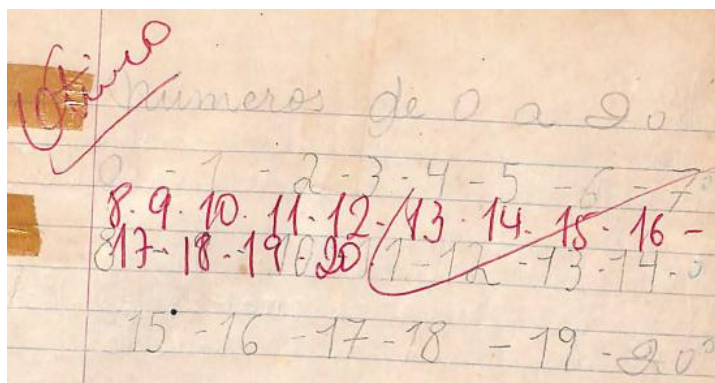 Ótimo
números de 0 a 20
0 - 1 - 2 - 3 - 4 - 5 - 6 - 7
8. 9. 10. 11. 12. 13. 14. 15. 16 -
17 - 18 - 19 - 20.
8 10 11 - 12 - 13 - 14 -
15 - 16 - 17 - 18 - 19 - 20